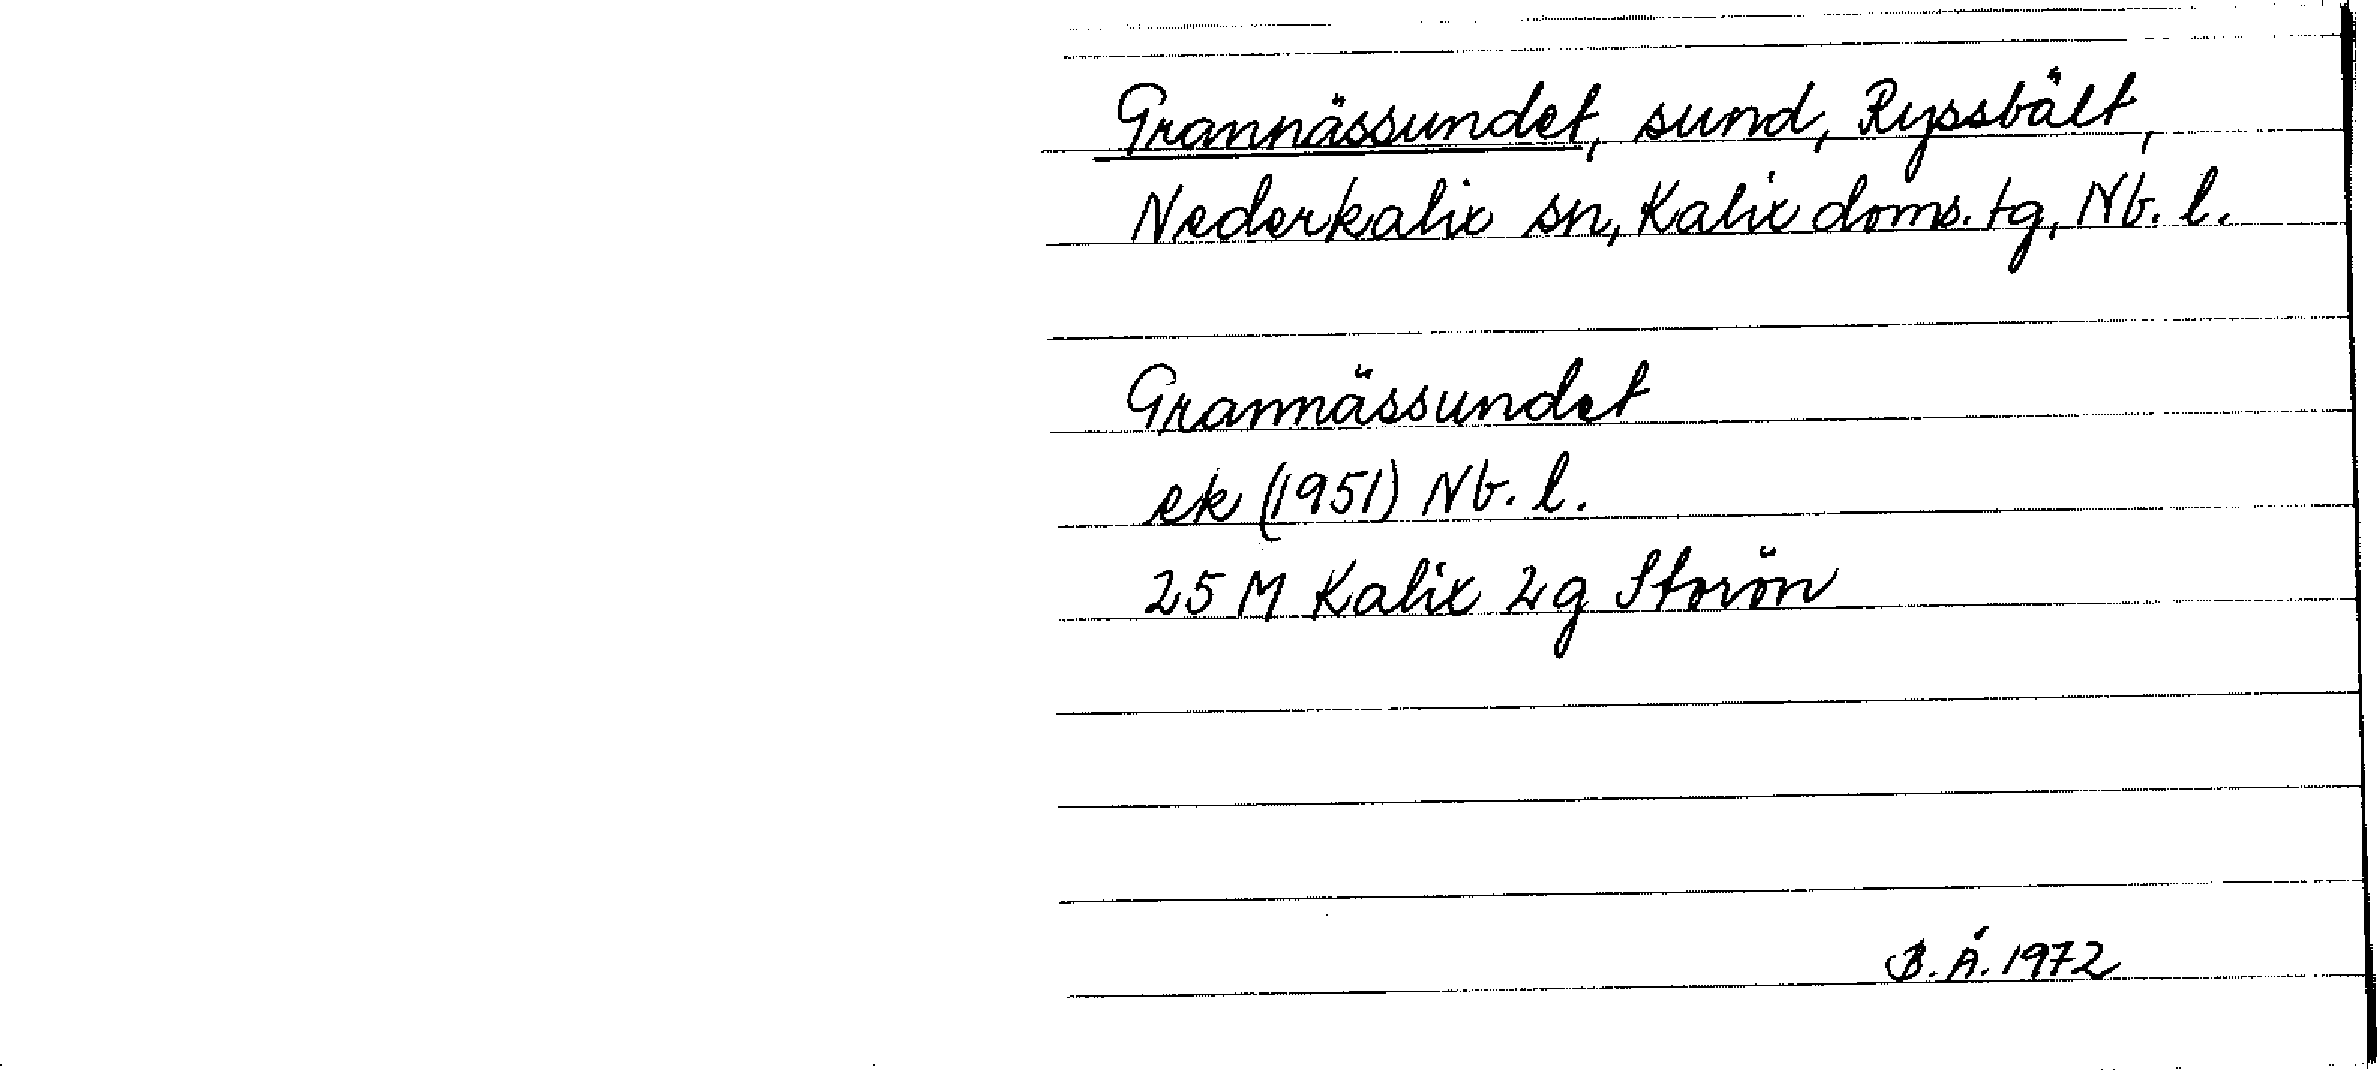 Grannässundet, sund, Ryssbält,
Nederkalix sn, Kalix doms. tg, Nb. l.
Grannässundet
ek (1951) Nb. l.
25 M Kalix 2g Storön
B. Å. 1972